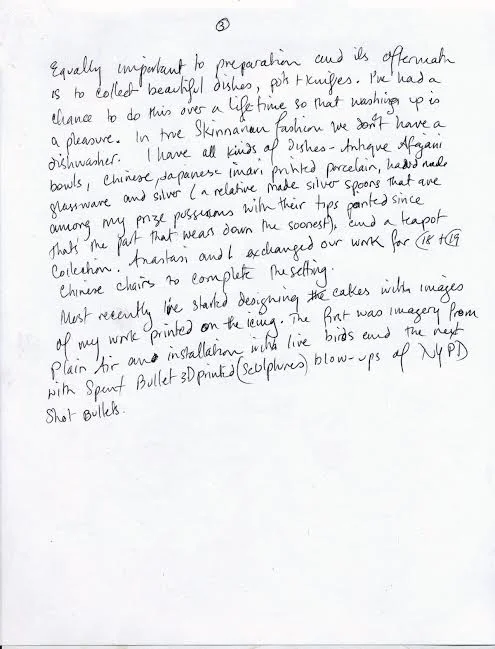 ③
Equally important to preparation and its aftermath
is to collect beautiful dishes, pots + knifes. I've had a
chance to do this over a lifetime so that washing up is
a pleasure. In true Skinnarian fashion we don't have a
dishwasher. I have all kinds of dishes - Antique Afgani
bowls, Chinese, Japanese imari printed porcelain, hand made
glassware and silver (a relative made silver spoons that are
among my prize possessions with their tips pointed since
thats the part that wears down the soonest), and a teapot
Collection. Anastasi and I exchanged our work for 18 + 19
Chinese chairs to complete the setting.
Most recently I've started designing the cakes with images
of my work printed on the icing. The first was imagery from
Plain Air an installation with live birds and the next
with Spent Bullet 3D printed (sculptures) blow-ups of NYPD
Shot Bullets.